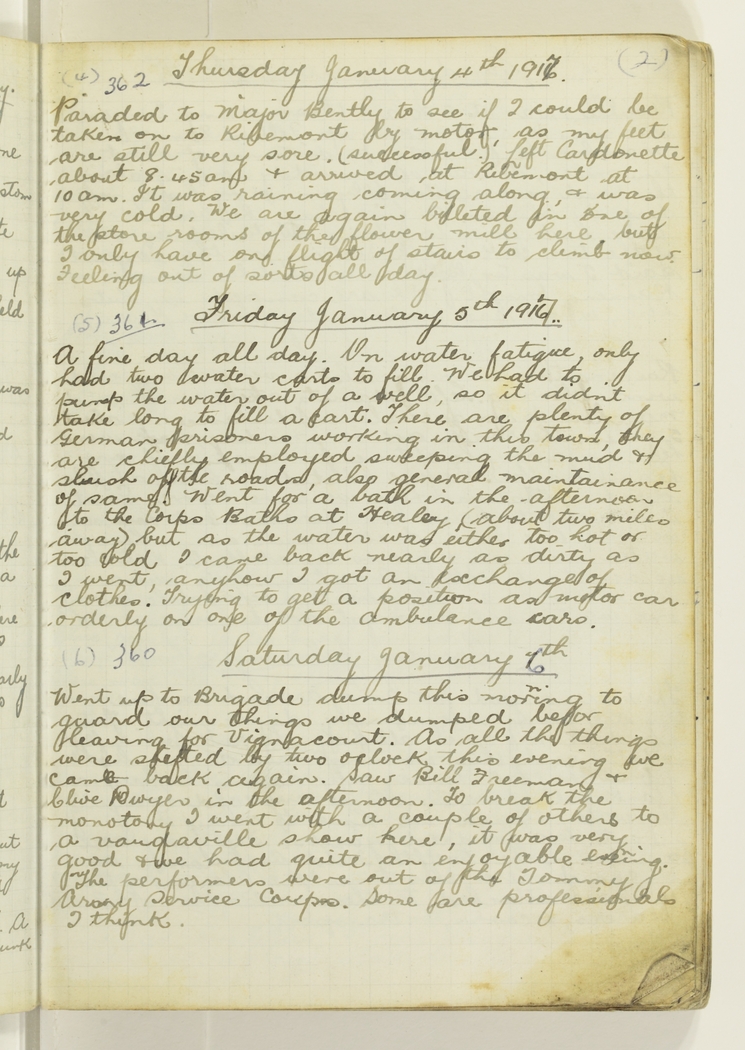 (4) 362 Thursday January 4th 1917. (2)
Paraded to Major Bently to see if I could be
taken on to Ribemont by motor, as my feet
are still very sore. (successful.) Left Cardonette
about 8.45am & arrived at Ribemont at
10am. It was raining coming along, & was
very cold. We are again billeted in one of
the store rooms of the flower mill here but
I only have one flight of stairs to climb now.
Feeling out of sorts all day.
(5) 361 Friday January 5th 1917.
A fine day all day. On water fatigue, only
had two water carts to fill. We had to
pump the water out of a well, so it didnt
take long to fill a cart. There are plenty of
German prisoners working in this town, they
are chiefly employed sweeping the mud &
slush off the roads, also general maintainance
of same. Went for a bath in the afternoon
to the Corps Baths at Healey (about two miles
away) but as the water was either too hot or
too cold I came back nearly as dirty as
I went, anyhow I got an exchange of
clothes. Trying to get a position as motor car
orderly on one of the ambulance cars.
(6) 360 Saturday January 6th
Went up to Brigade dump this morning to
guard our things we dumped befor
leaving for Vignacourt. As all the things
were shifted by two oclock this evening we
came back again. Saw Bill Freeman &
Clive Dwyer in the afternoon. To break the
monotony I went with a couple of others to
a vaudaville show here, it was very
good & we had quite an enjoyable
The performers were out of the Tommy
Army Service Corps. Some are professionals
I think.